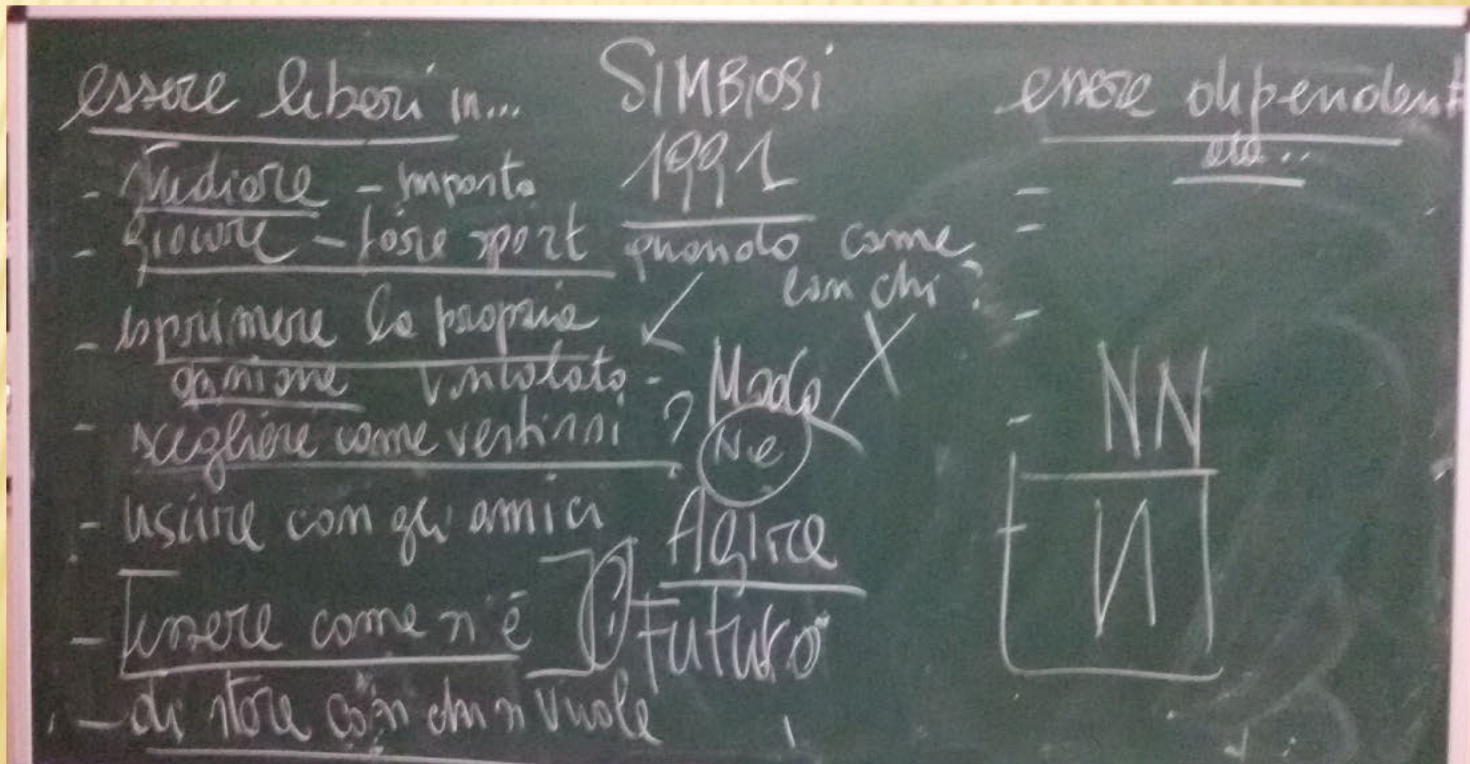 essere liberi in...
- studiare - imposto
- giocare - fare sport
- esprimere la propria
opinione vincolato -
- scegliere come vestirsi ?
- uscire con gli amici
- [essere come si è]
- di stare con chi si vuole
SIMBIOSI
1991
quando come
con chi ?
Moda
Agire
Futuro
essere dipendenti
NN
N